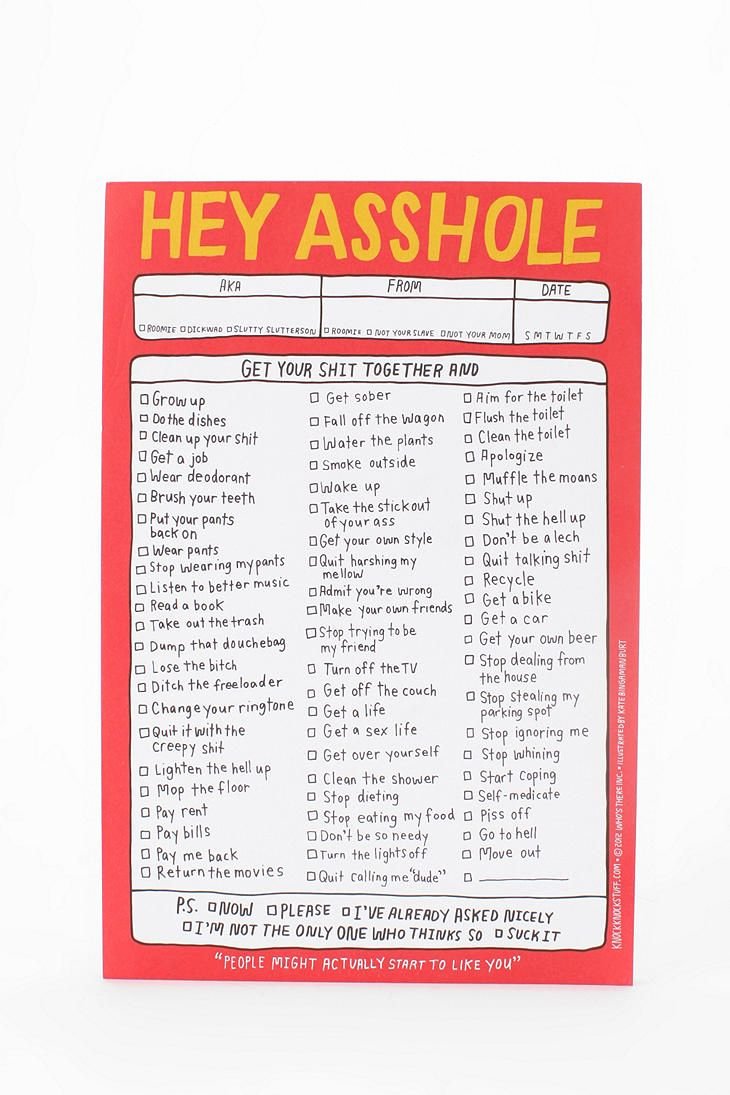 HEY ASSHOLE
AKA FROM DATE
□ ROOMIE □ DICKWAD □ SLUTTY SLUTTERSON □ ROOMIE □ NOT YOUR SLAVE □ NOT YOUR MOM S M T W T F S
GET YOUR SHIT TOGETHER AND
□ Grow up
□ Do the dishes
□ Clean up your shit
□ Get a job
□ Wear deodorant
□ Brush your teeth
□ Put your pants
back on
□ Wear pants
□ Stop wearing my pants
□ Listen to better music
□ Read a book
□ Take out the trash
□ Dump that douchebag
□ Lose the bitch
□ Ditch the freeloader
□ Change your ringtone
□ Quit it with the
creepy shit
□ Lighten the hell up
□ Mop the floor
□ Pay rent
□ Pay bills
□ Pay me back
□ Return the movies
□ Get sober
□ Fall off the wagon
□ Water the plants
□ Smoke outside
□ Wake up
□ Take the stick out
of your ass
□ Get your own style
□ Quit harshing my
mellow
□ Admit you're wrong
□ Make your own friends
□ Stop trying to be
my friend
□ Turn off the TV
□ Get off the couch
□ Get a life
□ Get a sex life
□ Get over yourself
□ Clean the shower
□ Stop dieting
□ Stop eating my food
□ Don't be so needy
□ Turn the lights off
□ Quit calling me "dude"
□ Aim for the toilet
□ Flush the toilet
□ Clean the toilet
□ Apologize
□ Muffle the moans
□ Shut up
□ Shut the hell up
□ Don't be a lech
□ Quit talking shit
□ Recycle
□ Get a bike
□ Get a car
□ Get your own beer
□ Stop dealing from
the house
□ Stop stealing my
parking spot
□ Stop ignoring me
□ Stop whining
□ Start coping
□ Self-medicate
□ Piss off
□ Go to hell
□ Move out
□ ____________
P.S. □ NOW □ PLEASE □ I'VE ALREADY ASKED NICELY
□ I'M NOT THE ONLY ONE WHO THINKS SO □ SUCK IT
"PEOPLE MIGHT ACTUALLY START TO LIKE YOU"
KNOCKKNOCKSTUFF.COM • © 2012 WHO'S THERE INC. • ILLUSTRATED BY KATE BINGAMAN BURT